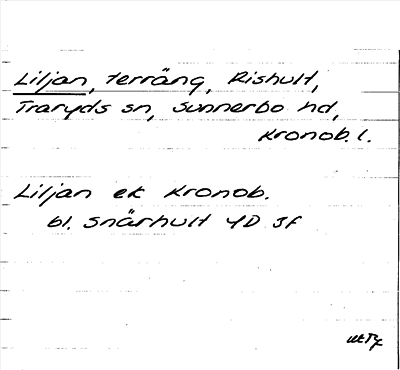 Liljan, terräng, Rishult,
Traryds sn, Sunnerbo hd,
Kronob. l.
Liljan ek Kronob.
bl. Snärhult 4D 3f